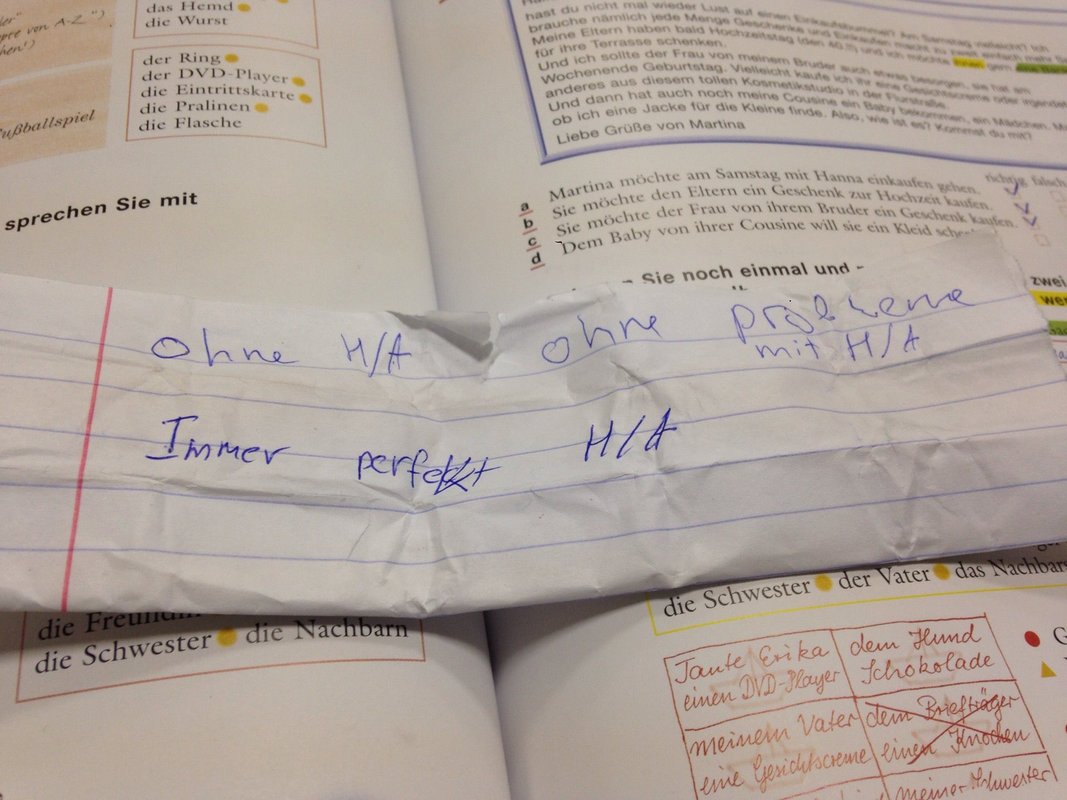 pte von A-Z")
hen!)
Fußballspiel
das Hemd
die Wurst
der Ring
der DVD-Player
die Eintrittskarte
die Pralinen
die Flasche
sprechen Sie mit
hast du nicht mal wieder Lust auf einen Einkaufsbummel? Am Samstag vielleicht? Ich
brauche nämlich jede Menge Geschenke und Einkaufen macht zu zweit einfach mehr
Meine Eltern haben bald Hochzeitstag (den 40.!!) und ich möchte ihnen gern
für ihre Terrasse schenken.
Und ich sollte der Frau von meinem Bruder auch etwas besorgen, sie hat am
Wochenende Geburtstag. Vielleicht kaufe ich ihr eine Gesichtscreme oder irgendet
anderes aus diesem tollen Kosmetikstudio in der
Und dann hat auch noch meine Cousine ein Baby bekommen, ein Mädchen.
ob ich eine Jacke für die Kleine finde. Also, wie ist es? Kommst du mit?
Liebe Grüße von Martina
richtig falsch
a Martina möchte am Samstag mit Hanna einkaufen gehen.
b Sie möchte den Eltern ein Geschenk zur Hochzeit kaufen.
c Sie möchte der Frau von ihrem Bruder ein Geschenk kaufen.
d Dem Baby von ihrer Cousine will sie ein Kleid
Sie noch einmal und
zwei
Ohne H/A ohne probleme
mit H/A
Immer perfekt H/A
die Schwester der Vater das Nachbars
die Schwester die Nachbarn
Tante Erika
einen DVD-Player
dem Hund
Schokolade
meinem Vater
eine Gesichtscreme
dem Briefträger
einen Knochen
meiner Schwester